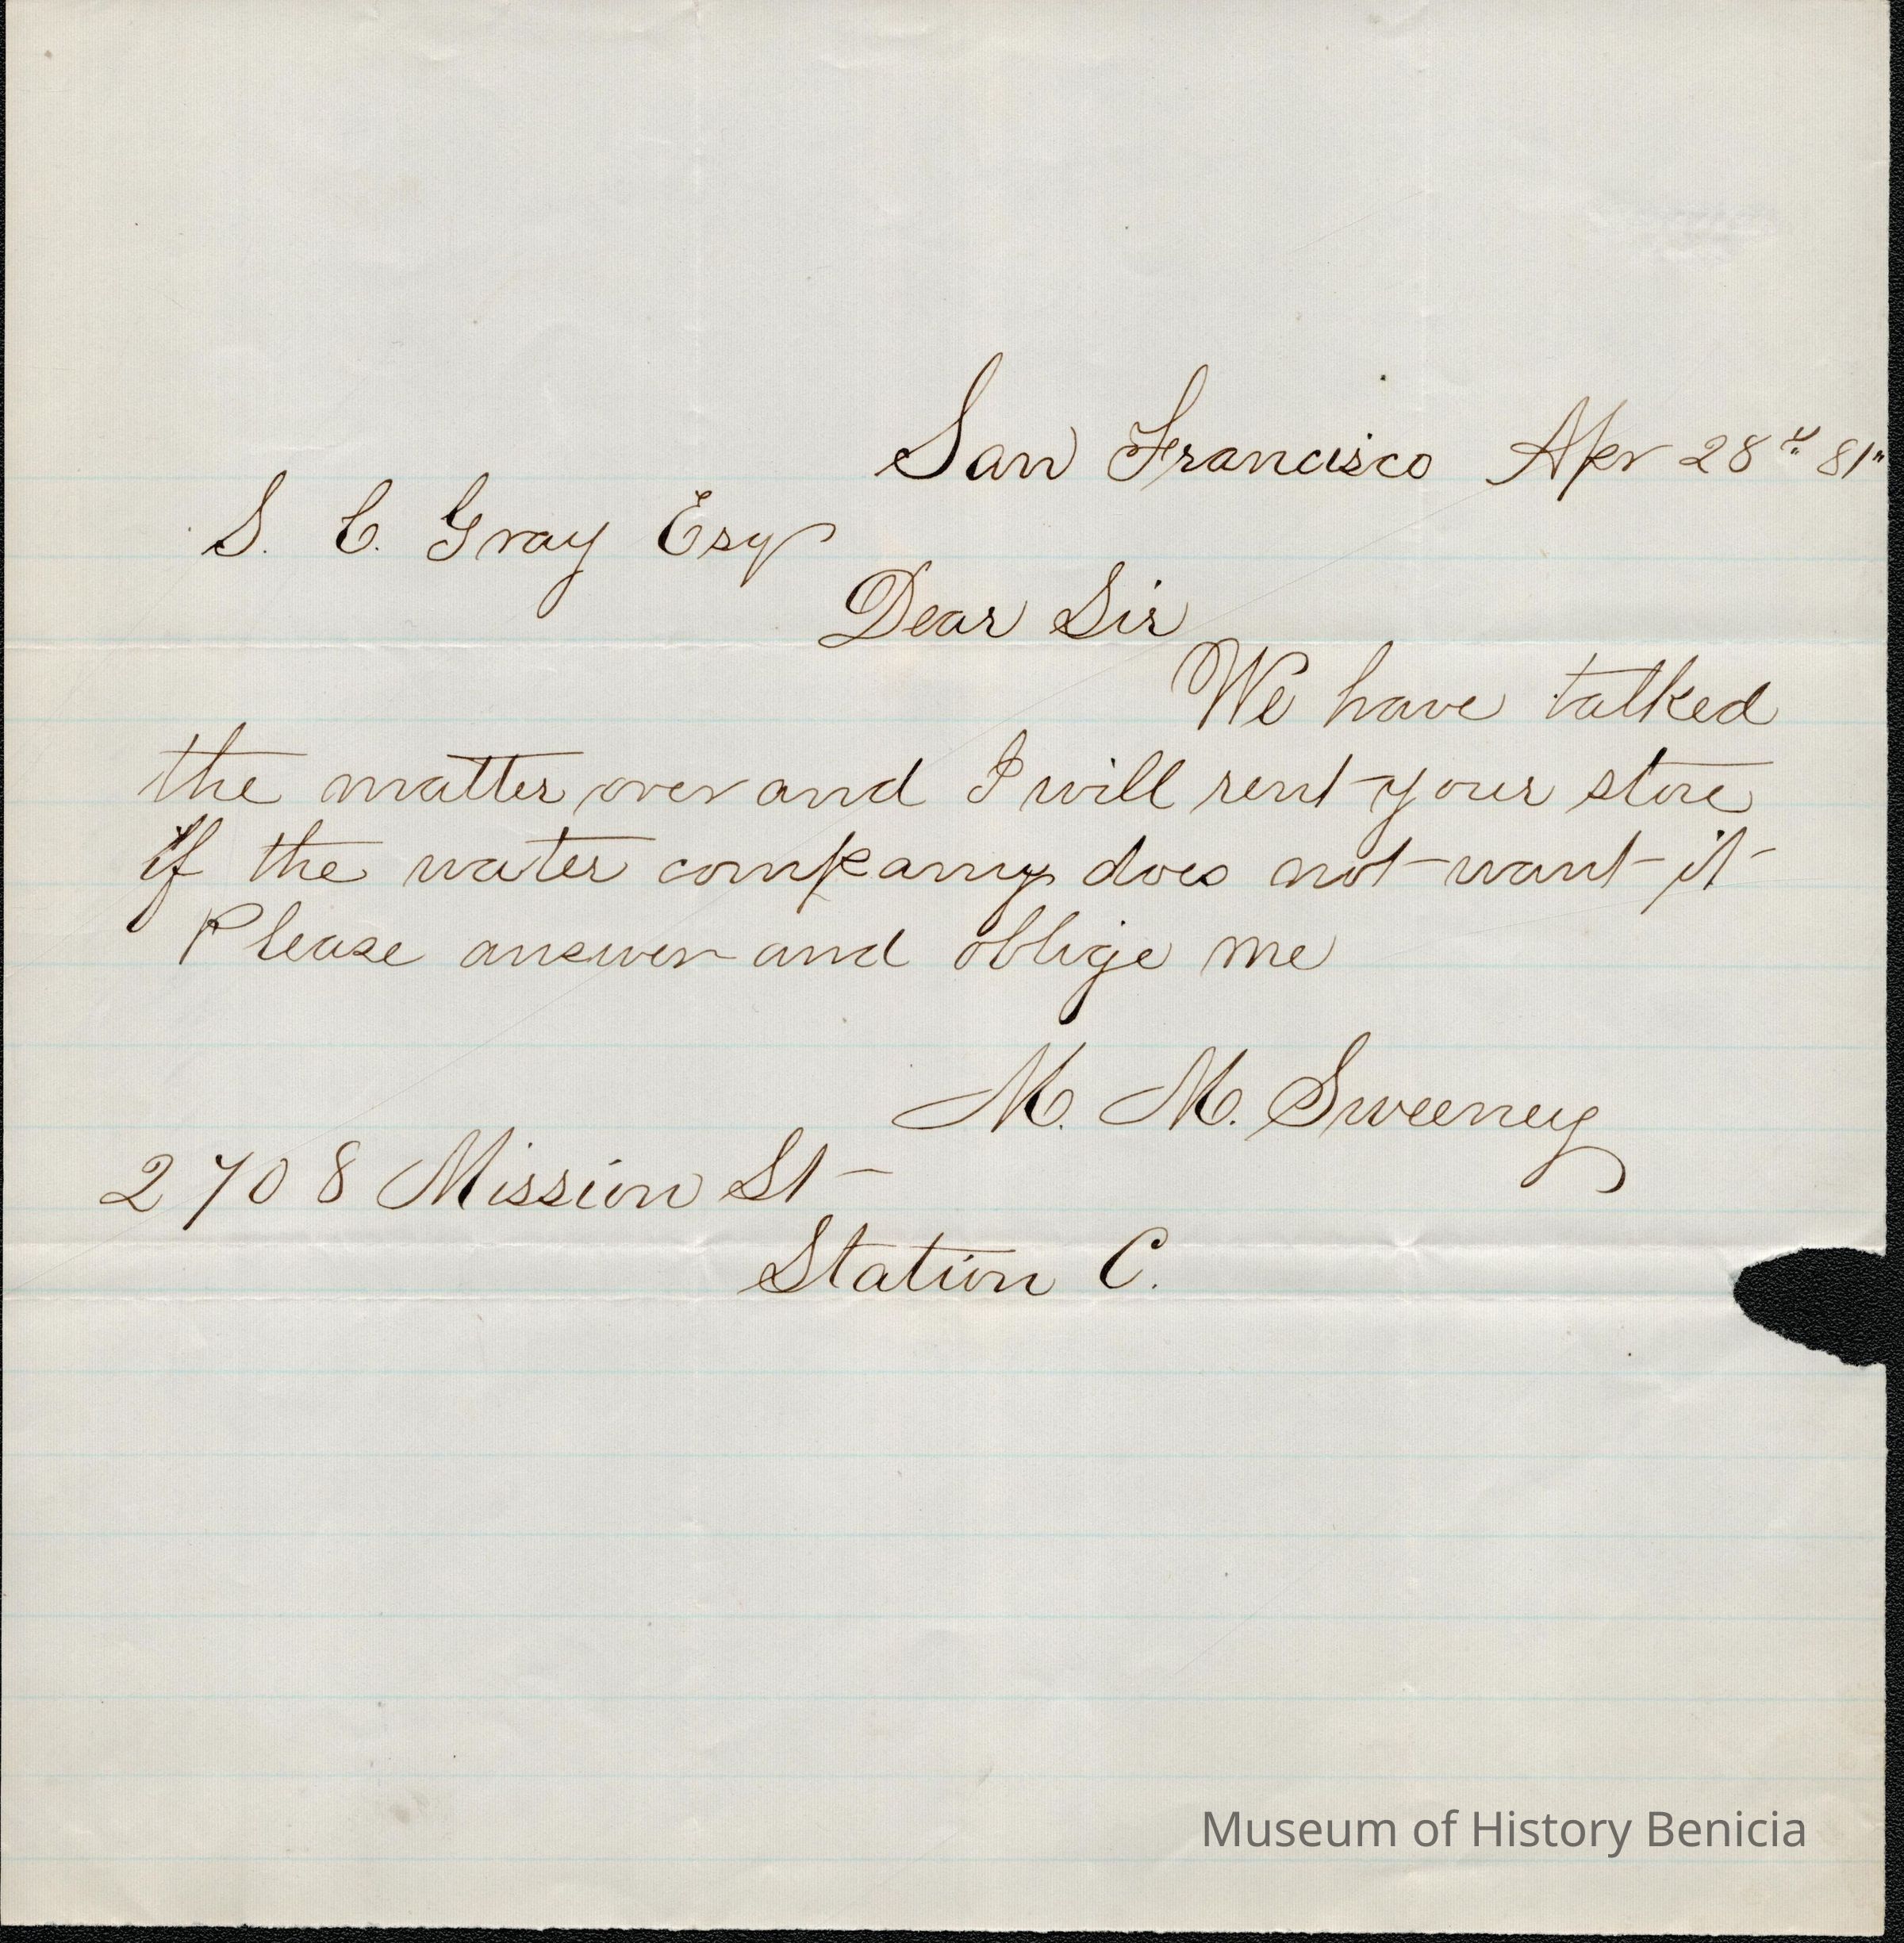 San Francisco Apr 28" 81"
S. C. Gray Esq
Dear Sir
We have talked
the matter over and I will rent your store
if the water company does not want it
Please answer and oblige me
M. M. Sweeney
2708 Mission St
Station C.
Museum of History Benicia